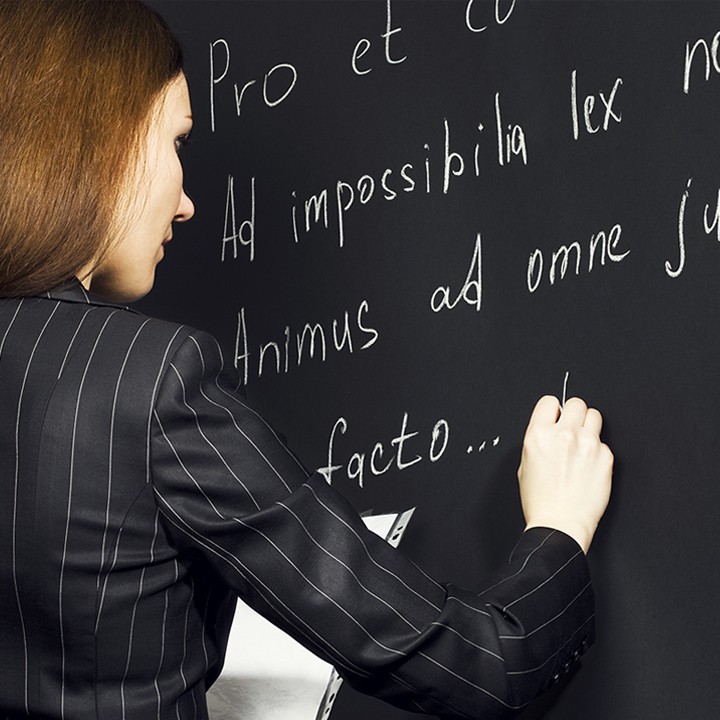 Pro et
Ad impossibilia lex
Animus ad omne
facto...